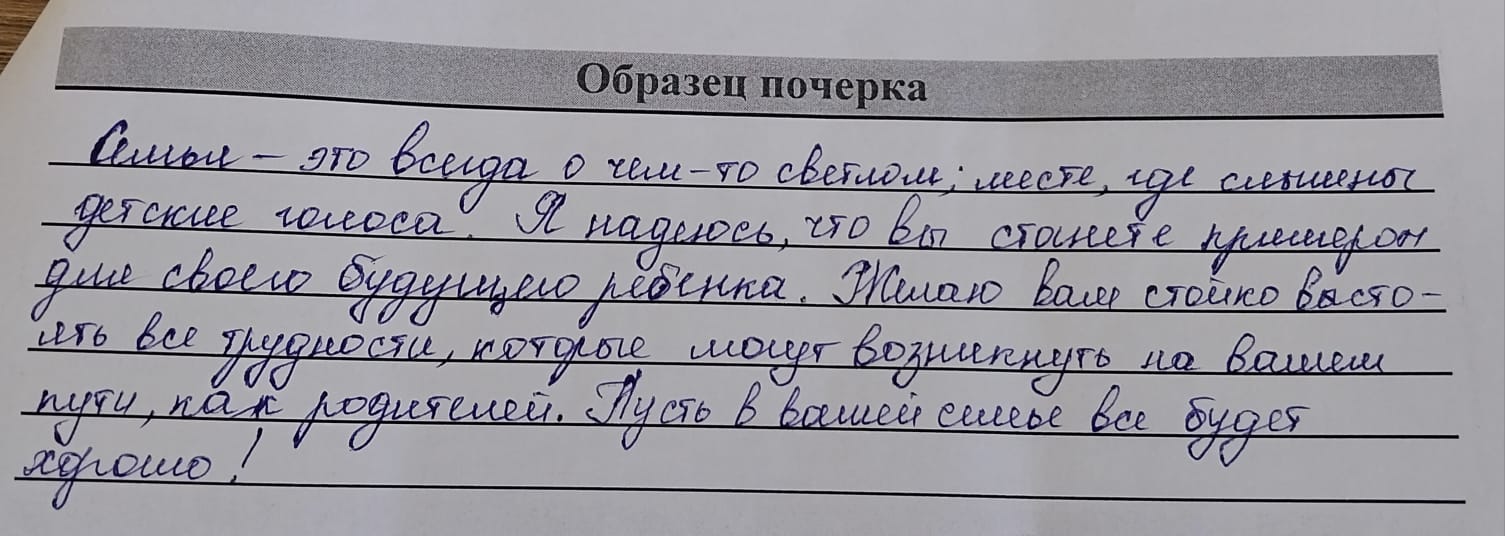 Образец почерка
Семья – это всегда о чем-то светлом; месте, где слышны
детские голоса. Я надеюсь, что вы станете примером
для своего будущего ребенка. Желаю вам стойко высто-
ять все трудности, которые могут возникнуть на вашем
пути, как родителей. Пусть в вашей семье все будет
хорошо!